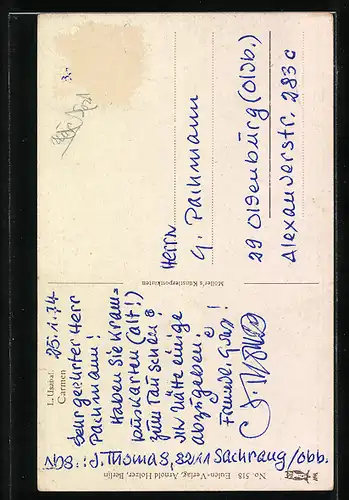 L. Usabal.
Carmen
25.1.74
Sehr geehrter Herr
Pachmann!
Haben Sie Kram=
puskarten (alt!)
zum Tauschen o
Ich hätte einige
abzugeben!
Freundl. Grüß!
J. Thomas
NOB::J. Thomas, 8211 Sachrang/Obb.
Möller's Künstlerpostkarten
Herrn
G. Pachmann
29 Oldenburg (Oldb.)
Alexanderstr. 283c
3.-
No. 518 Eulen-Verlag, Arnold Holzer, Berlin